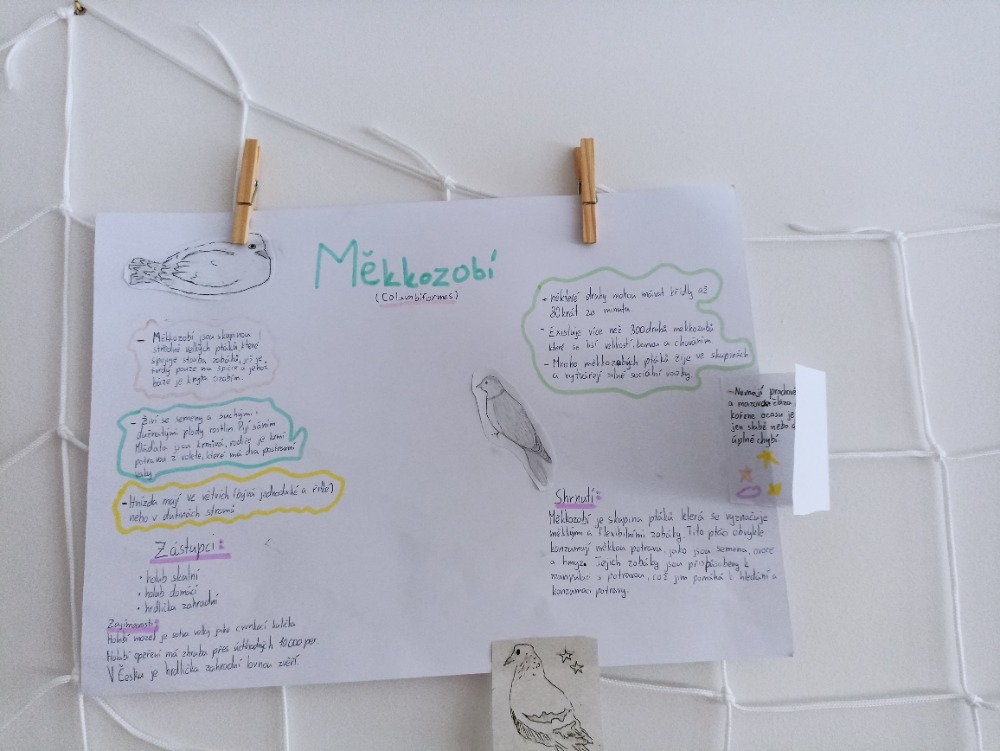 Měkkozobí
(Columbiformes)
- Měkkozobí jsou skupinou
středně velkých ptáků které
spojuje stavba zobáků, již je
tvrdý pouze na špičce a jehož
báze je kryta ozobím.
- Živí se semeny a suchými i
dužnatými plody rostlin. Pijí sáním
Mláďata jsou krmivá, rodiče je krmí
potravou z volete, které má dva postranní
vaky
- Hnízda mají ve větvích (bývá jednoduché a řídké)
nebo v dutinách stromů
Zástupci:
• holub skalní
• holub domácí
• hrdlička zahradní
Zajímavosti:
Holubí mozek je velký jako
Holubí opeření má zhruba přes 10 000 per.
V Česku je hrdlička zahradní lovnou zvěří
- některé druhy mohou mávat křídly až
80krát za minutu
- Existuje více než 300 druhů měkkozobů
které se liší velikostí, barvou a chováním
- Mnoho měkkozobých ptáků žije ve skupinách
a vytvářejí silné sociální vazby.
- Nemají prachové
a mazová žláza
kořene ocasu je
jen slabě nebo
úplně chybí
Shrnutí:
Měkkozobí je skupina ptáků která se vyznačuje
měkkými a flexibilními zobáky. Tito ptáci obvykle
konzumují měkkou potravu, jako jsou semena, ovoce
a hmyz. Jejich zobáky jsou přizpůsobeny k
manipulaci s potravou, což jim pomáhá k hledání a
konzumaci potravy.